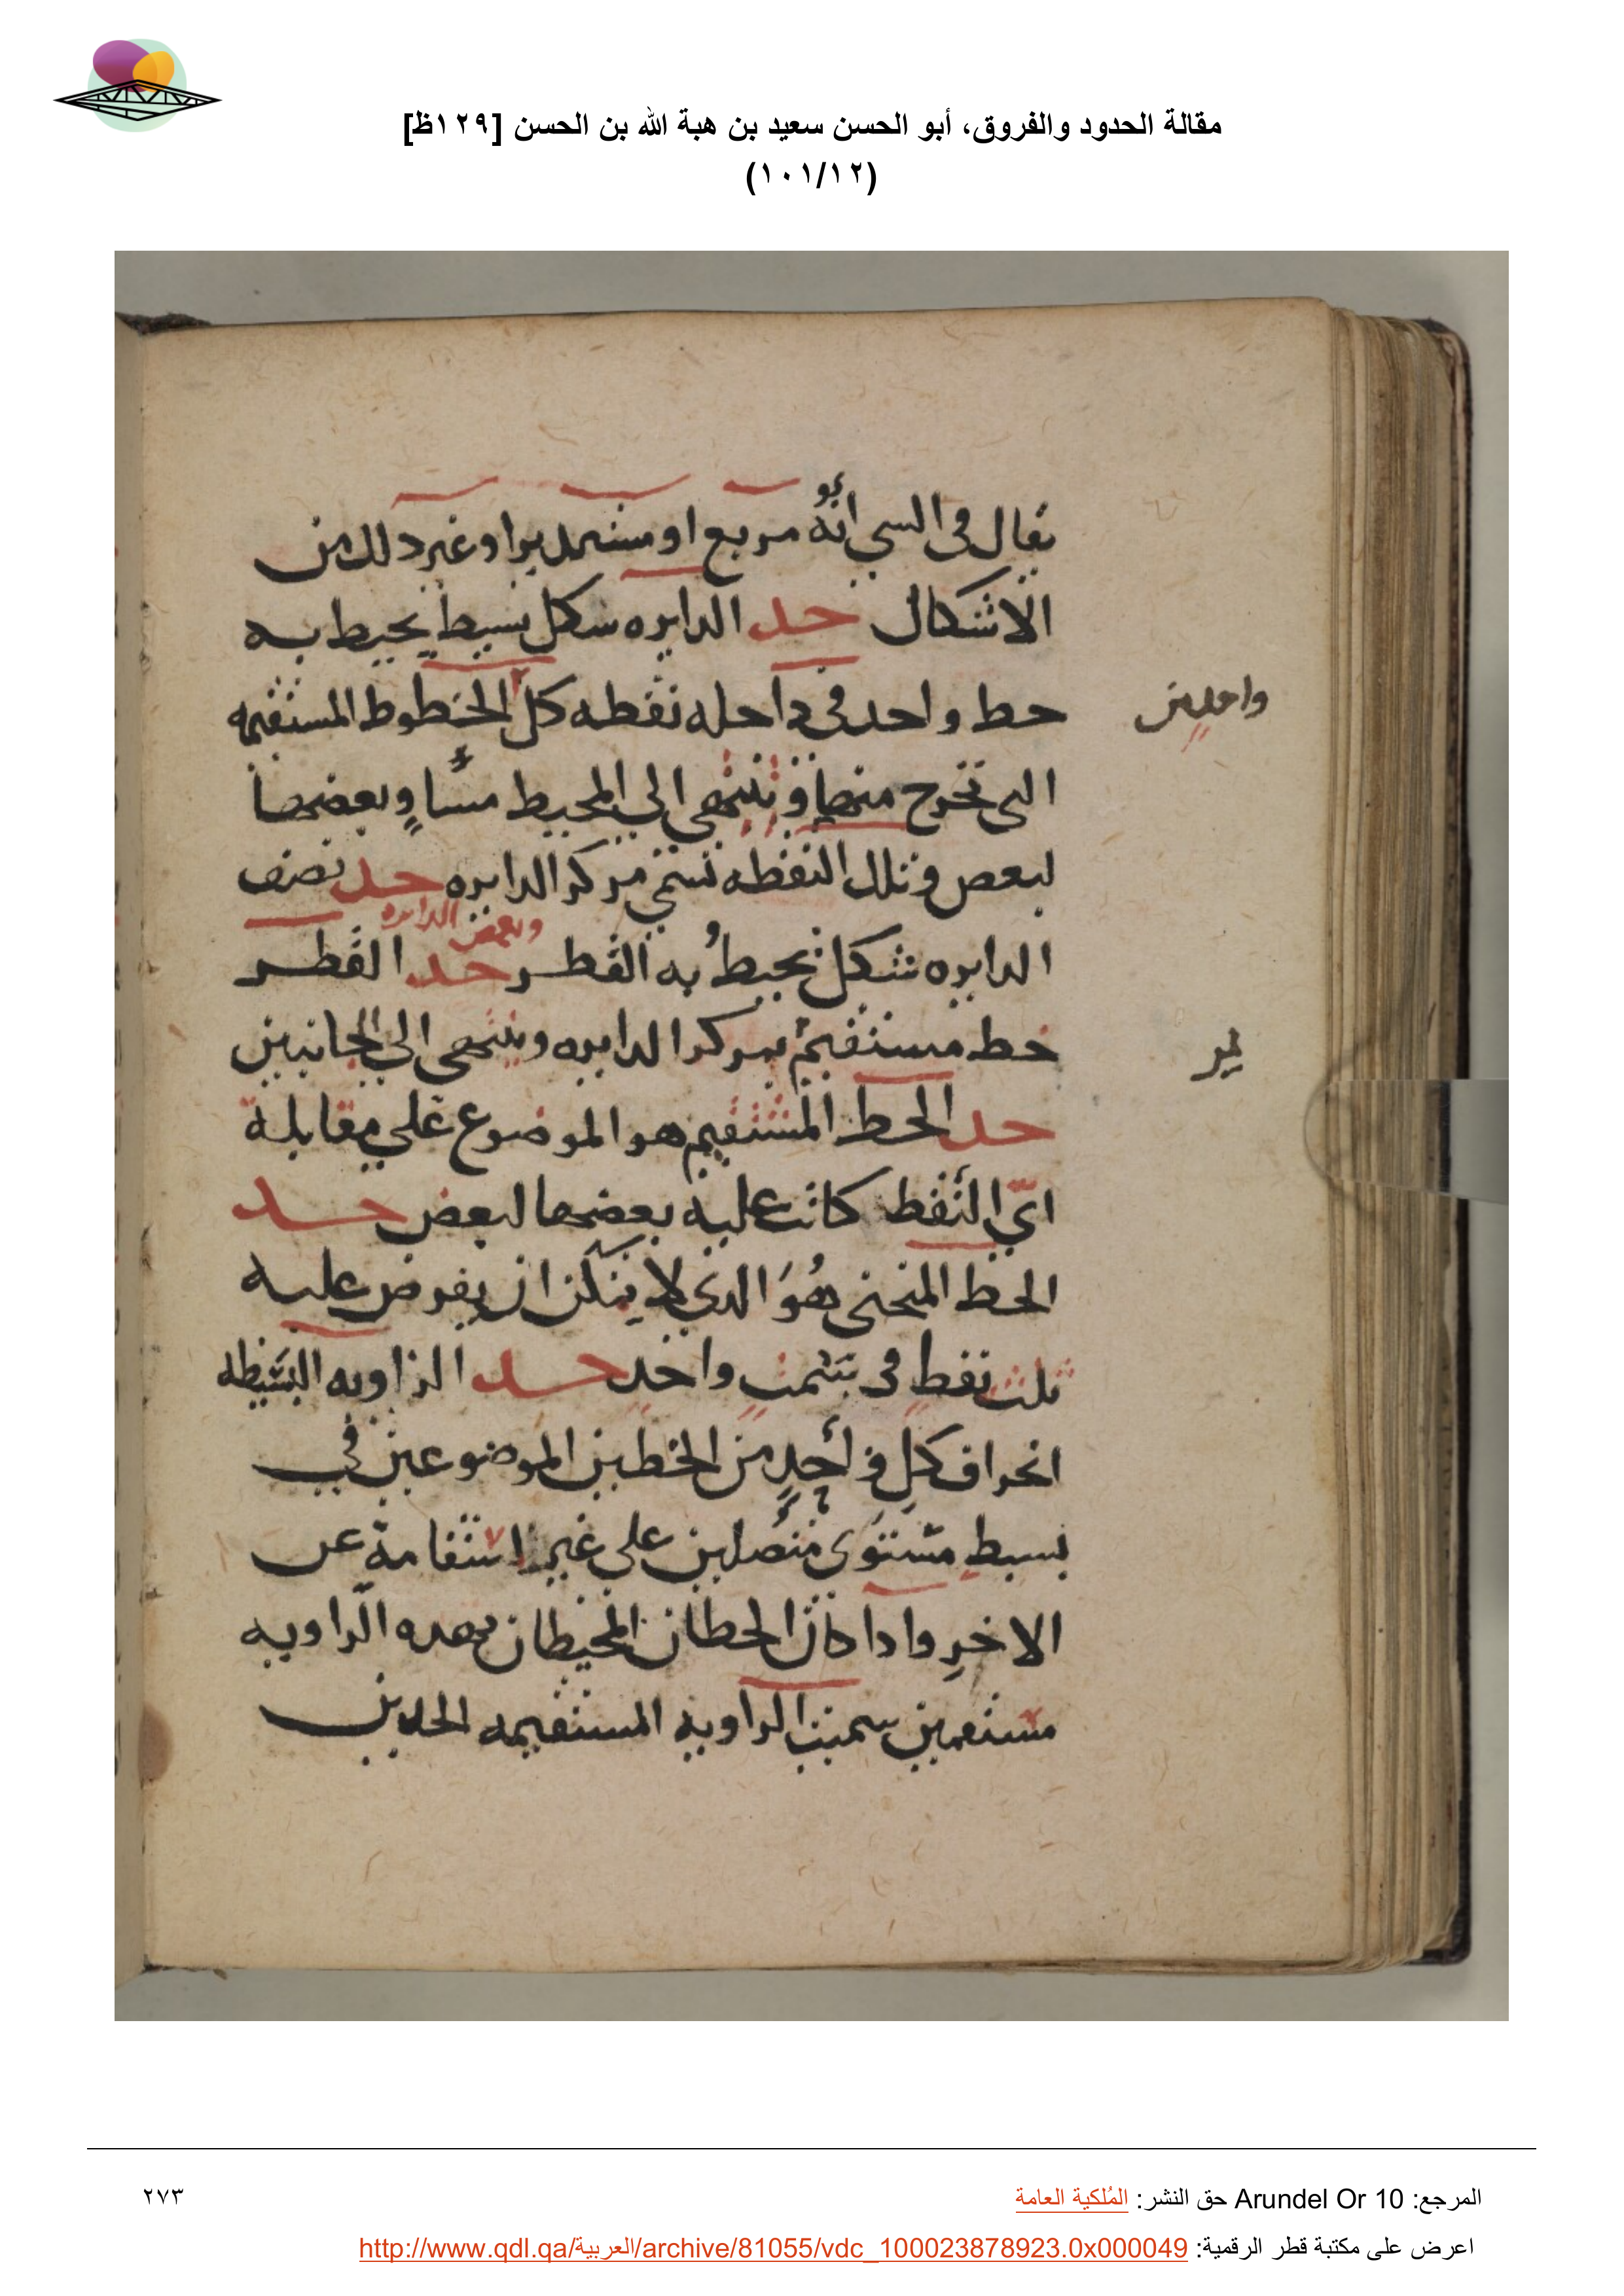 مقالة الحدود والفروق، أبو الحسن سعيد بن هبة الله بن الحسن [١٢٩ظ]
(١٠١/١٢)
يقال فى السى انه مربع او مستدير او غير دلك من
الاشكال حد الدايره شكل بسيط يحيط به
حط واحد فى داحله نقطه كل الخطوط المستقيمه
واحدين
التى تخرج منها وتنتهى الي المحيط مساوٍ بعضها
لبعض وتلك النقطه تسمي مركز الدايره حد نصف
وبعض الدايره
الدايره شكل يحيط به القطر حد القطر
خط مستقيم يمر بمركز الدايره وينتهى الي الجانبين
حد الخط المستقيم هو الموضوع علي مقابلة
ايّ النقط كانت عليه بعضها لبعض حد
الخط المنحنى هُوَ الدى لا يمكن ان يفرض عليه
ثلث نقطٍ فى سمتٍ واحدٍ حد الزاويه البسيطه
انحراف كل واحدٍ من الخطين الموضوعين في
بسيطٍ مستوى متصلين على غير استقامة عن
الاخرِ وادا كان الحطان المحيطان بهده الزاويه
مستقيمين سميت الزاويه المستقيمه الخطين
المرجع: Arundel Or 10 حق النشر: المُلكية العامة
٢٧٣
اعرض على مكتبة قطر الرقمية: http://www.qdl.qa/العربية/archive/81055/vdc_100023878923.0x000049